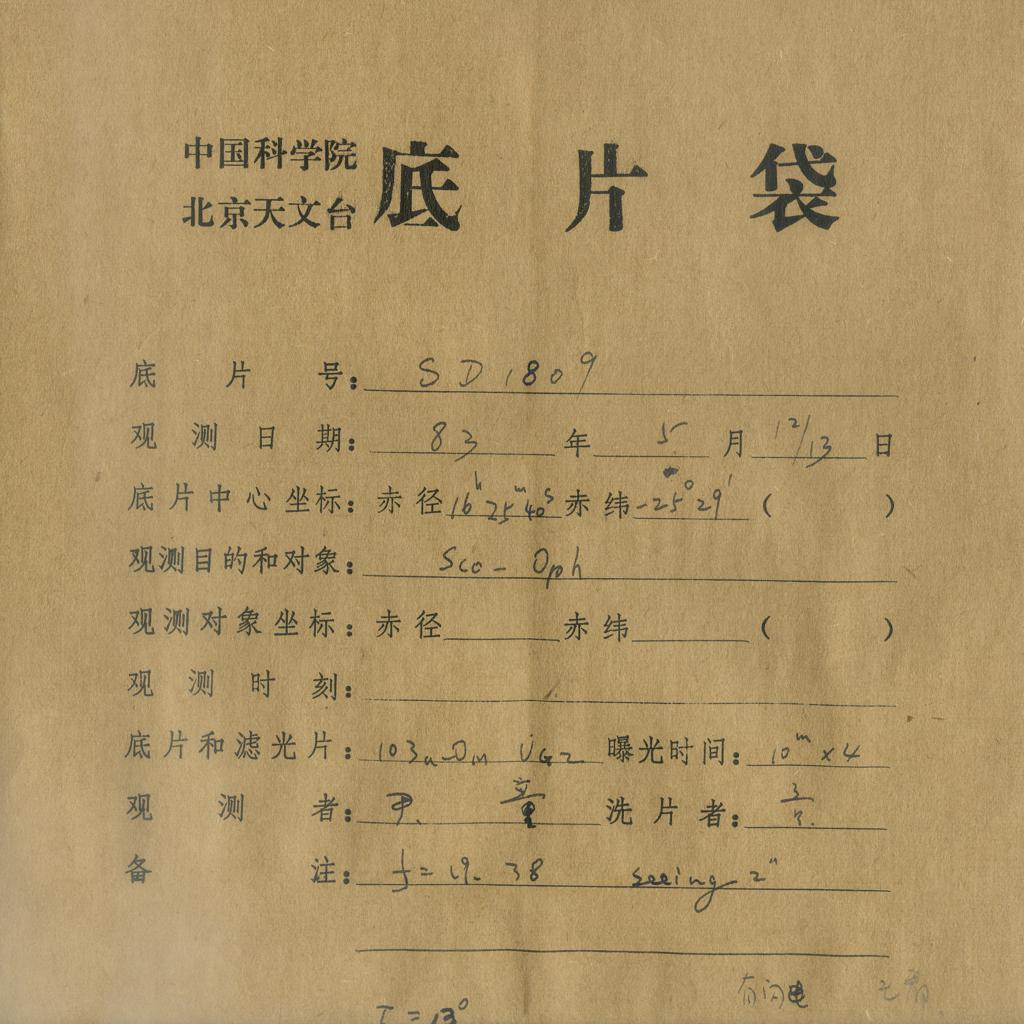 中国科学院
北京天文台
底片袋
底片号：SD1809
观测日期：83年5月12/13日
底片中心坐标：赤径16h25m40s赤纬-25°29′（ ）
观测目的和对象：Sco- Oph
观测对象坐标：赤径 赤纬 （ ）
观测时刻：
底片和滤光片：103a-O UG2 曝光时间：10m×4
观测者： 童 洗片者：
备注：f=19.38 seeing 2"
T=13°
有闪电